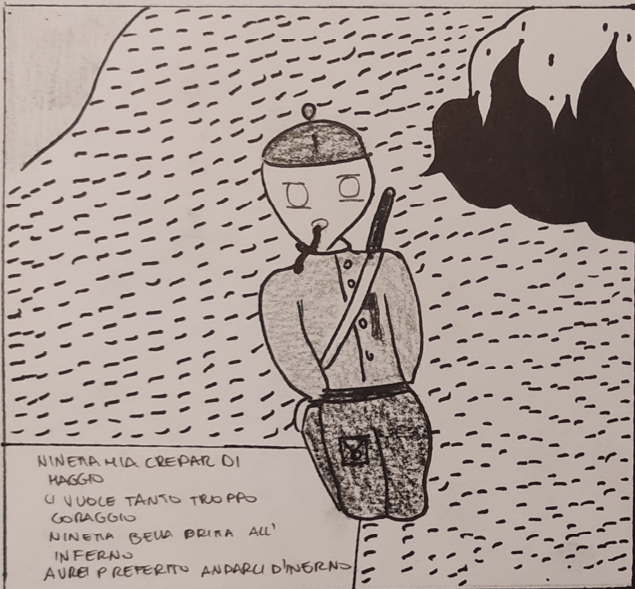 NINETTA MIA CREPAR DI
MAGGIO
CI VUOLE TANTO TROPPO
CORAGGIO
NINETTA BELLA DRITTA ALL'
INFERNO
AVREI PREFERITO ANDARCI D'INERNO